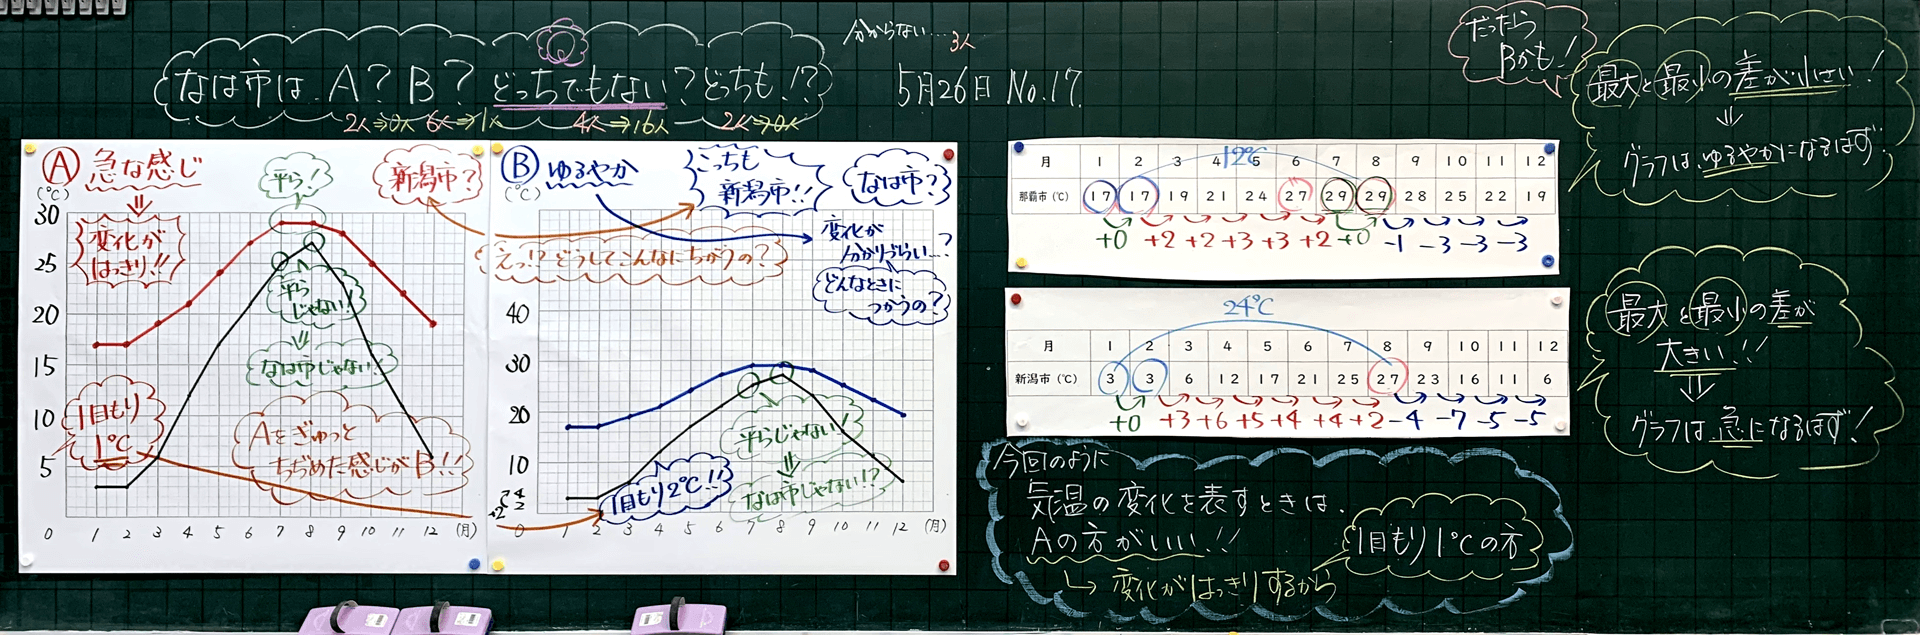 分からない… 3人
なは市は A? B? どっちでもない? どっちも!?
2人⇒0人 6人⇒1人 4人⇒16人 2人⇒0人
5月26日 No.17.
Ⓐ 急な感じ
⇓
変化が
はっきり!!
平ら!
新潟市?
(℃)
30
25
20
15
10
5
0
1 2 3 4 5 6 7 8 9 10 11 12 (月)
平ら
じゃない!
⇓
なは市じゃない!
1目もり
1℃
Aをぎゅっと
ちぢめた感じがB!!
Ⓑ ゆるやか
(℃)
こっちも
新潟市!!
なは市?
えっ!? どうしてこんなにちがうの?
変化が
分かりづらい…?
どんなときに
つかうの?
40
30
20
10
4
2
0
1 2 3 4 5 6 7 8 9 10 11 12 (月)
+2
平らじゃない!
⇓
なは市じゃない!?
1目もり2℃!!
12℃
月 1 2 3 4 5 6 7 8 9 10 11 12
那覇市(℃) 17 17 19 21 24 27 29 29 28 25 22 19
+0 +2 +2 +3 +3 +2 +0 -1 -3 -3 -3
24℃
月 1 2 3 4 5 6 7 8 9 10 11 12
新潟市(℃) 3 3 6 12 17 21 25 27 23 16 11 6
+0 +3 +6 +5 +4 +4 +2 -4 -7 -5 -5
今回のように
気温の変化を表すときは、
Aの方がいい!!
↳ 変化がはっきりするから
1目もり1℃の方
だったら
Bかも!
最大と最小の差が小さい!
⇓
グラフは、ゆるやかになるはず!
最大と最小の差が
大きい!!
⇓
グラフは急になるはず!